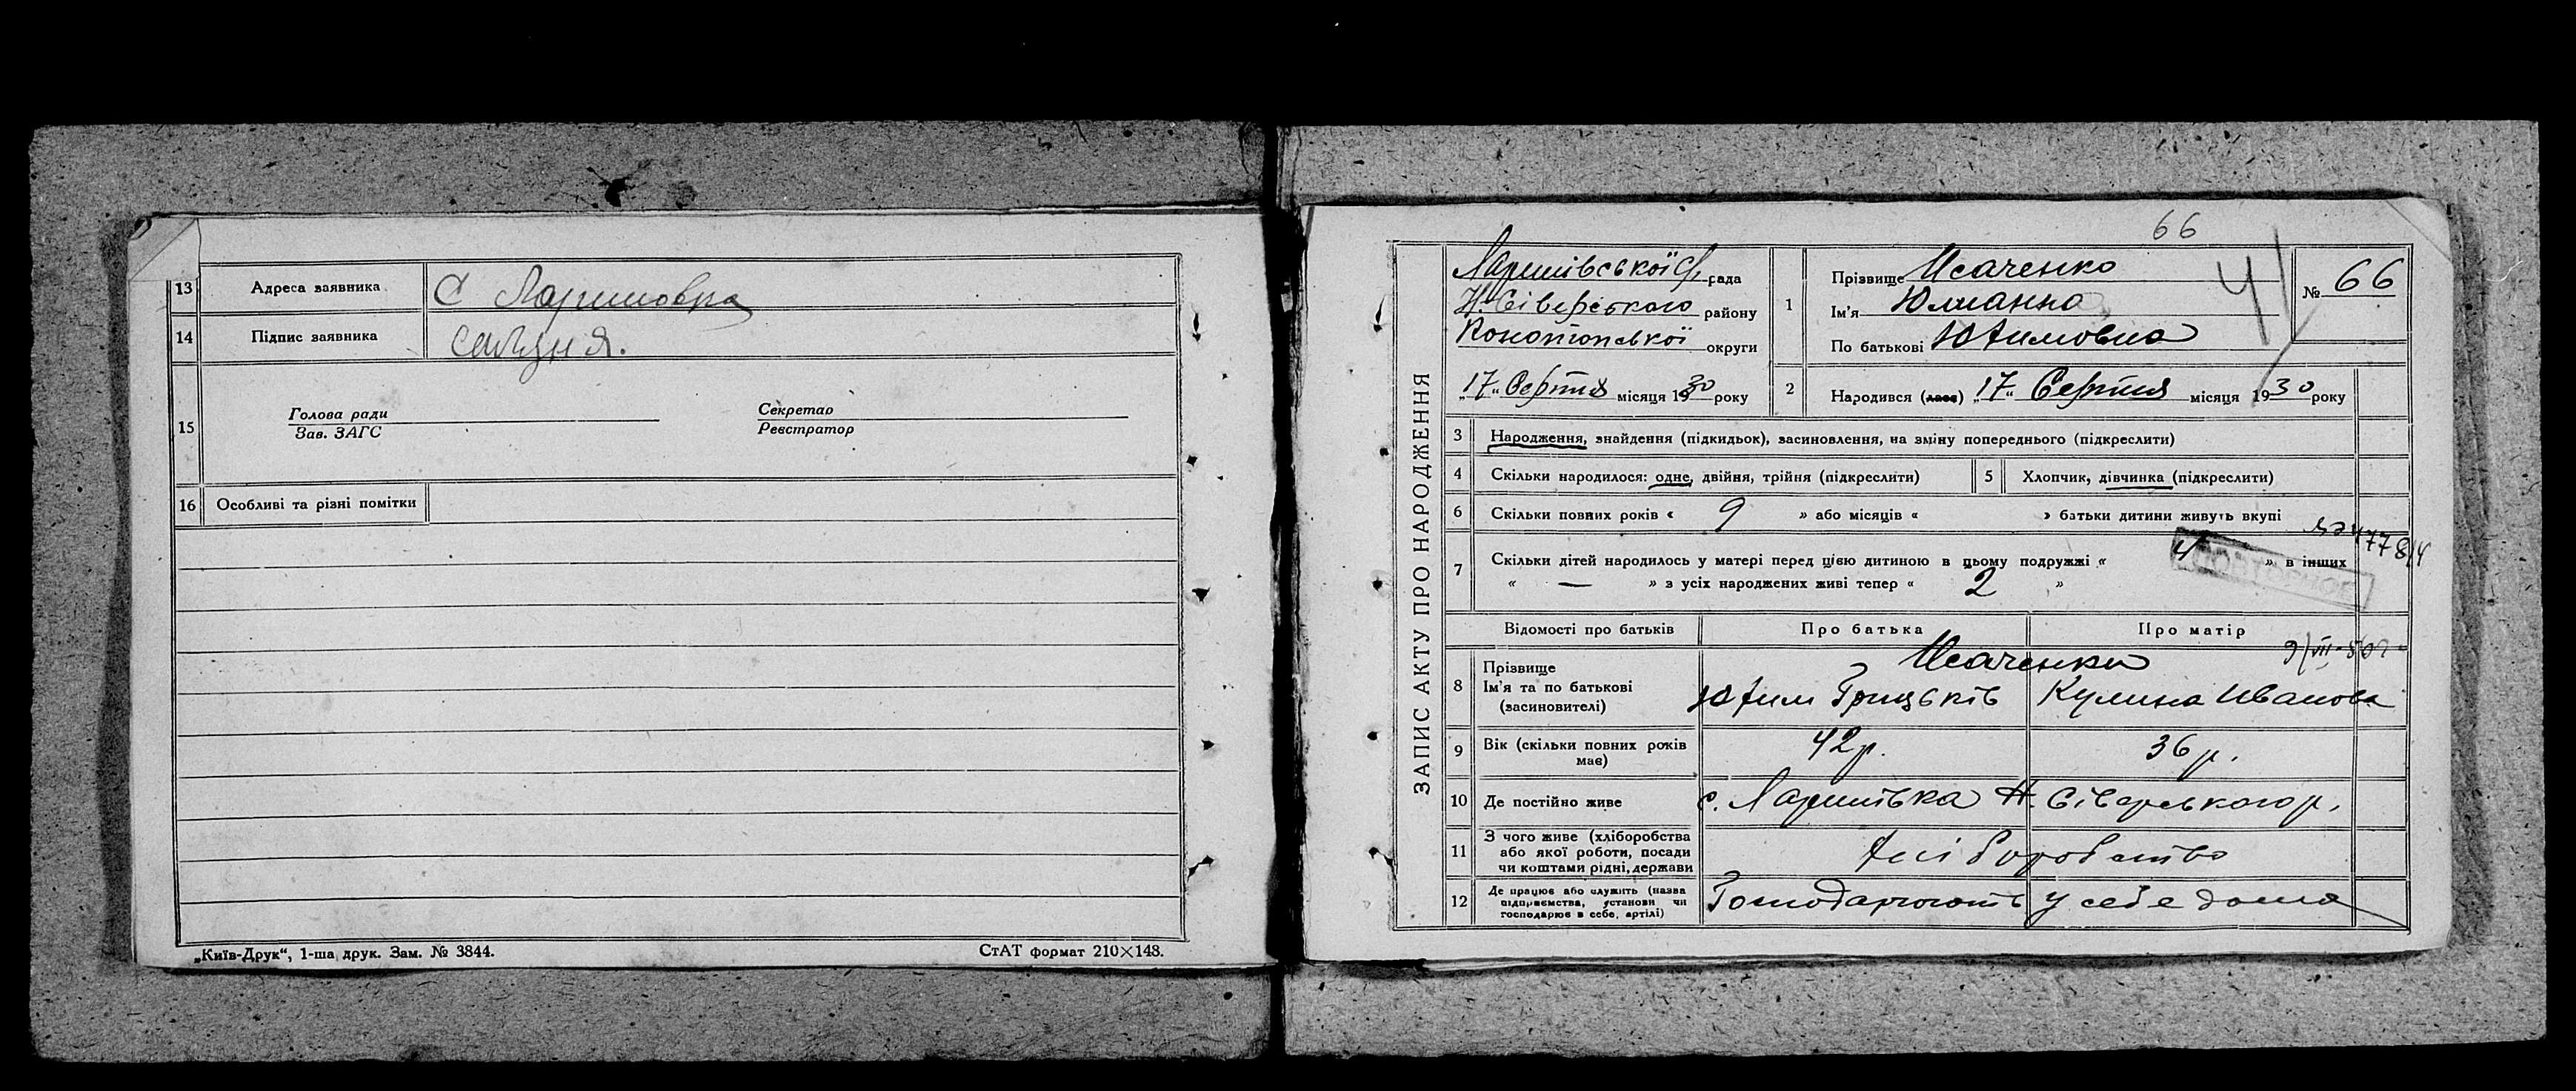 13 Адреса заявника С Лариновка
14 Підпис заявника
15
Голова ради
Зав. ЗАГС
Секретар
Реєстратор
16 Особливі та різні помітки
„Київ-Друк“, 1-ша друк. Зам. № 3844.
СтАТ формат 210×148.
66
ЗАПИС АКТУ ПРО НАРОДЖЕННЯ
рада
Н. Сіверського району
Конотопської округи
„17“ Серпня місяця 1930 року
1 Прізвище Исаченко
Ім'я Юлианна
По батькові Юхимовна
41
№ 66
2 Народився (лась) „17“ Серпня місяця 1930 року
3 Народження, знайдення (підкидьок), засиновлення, на зміну попереднього (підкреслити)
4 Скільки народилося: одне, двійня, трійня (підкреслити)
5 Хлопчик, дівчинка (підкреслити)
6 Скільки повних років « 9 » або місяців « » батьки дитини живуть вкупі
7 Скільки дітей народилось у матері перед цією дитиною в цьому подружжі « 4 » в інших
« — » з усіх народжених живі тепер « 2 »
Відомості про батьків Про батька Про матір
8 Прізвище Исаченки
Ім'я та по батькові Юхим Грицьків Кулина Иванова
(засиновителі)
9 Вік (скільки повних років 42 р. 36 р.
має)
10 Де постійно живе с. Ларинівка Н. Сіверського р.
11 З чого живе (хліборобства
або якої роботи, посади Хліборобство
чи коштами рідні, держави
12 Де працює або служить (назва
підприємства, установи чи Господарюють у себе дома
господарює в себе, артілі)